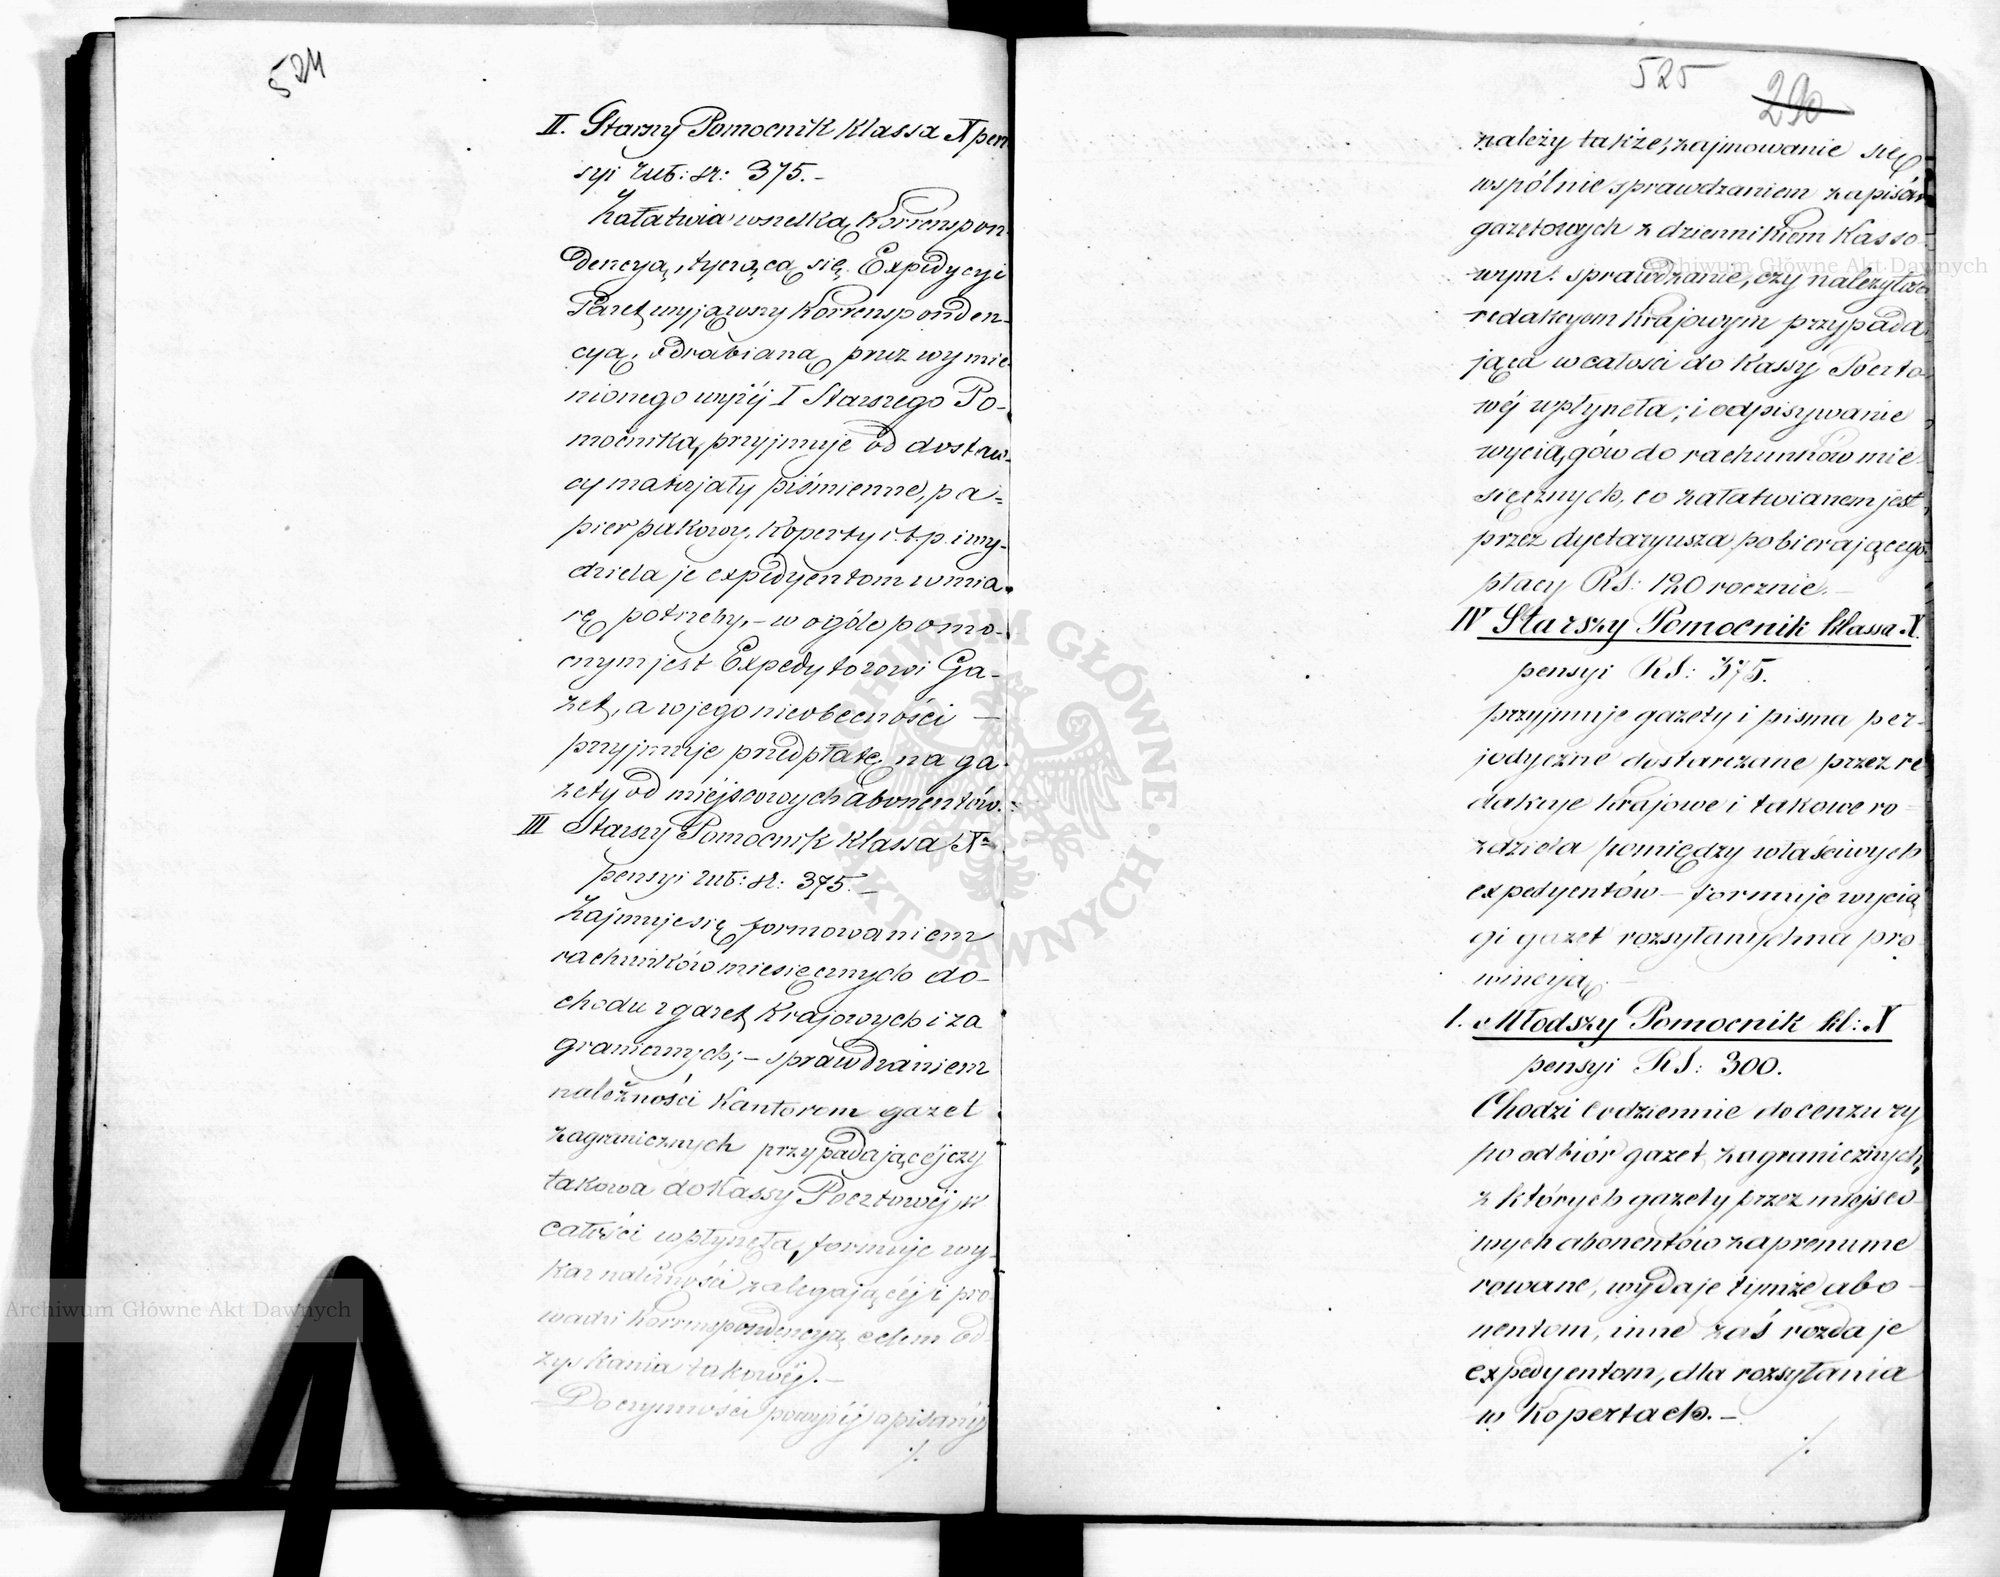 524
II. Starszy Pomocnik Klassa X pen
syi rub: sr: 375.-
Załatwia wszelką Korrespon-
dencyą, tyczącą się Expedycyi
Gazet, wyjąwszy Korresponden-
cyą, odrabianą przez wymie
nionego wyżéj I Starszego Po-
mocnika, przyjmuje od dostaw-
cy materjały piśmienne, pa-
pier pakowy, Koperty i t. p. i wy-
dziela je expedyentom w mia-
rę potrzeby,- w ogóle pomo-
cnym jest Expedytorowi Ga-
zet, a w jego nieobecności —
przyjmuje przedpłatę na ga-
zety od miéjscowych abonentów.-
III Starszy Pomocnik Klassa Xa
pensyi rub: sr: 375.-
Zajmuje się formowaniem
rachunków miesięcznych do-
chodu z gazet Krajowych i za
granicznych;- sprawdzaniem
należności Kantorom gazet
zagranicznych przypadającéj czy
takowa do Kassy Pocztowéj w
całości wpłynęła, formuje wy-
kaz należności zalegającéj i pro
wadzi Korrespondencyą celem od
zyskania takowéj.-
Do czynności powyżéj opisanéj
./.
525
290
należy także, zajmowanie się
wspólnie sprawdzaniem zapisów
gazetowych z dziennikiem Kasso-
wym. sprawdzanie, czy należytość
redakcyom Krajowym przypada
jąca w całości do Kassy Poczto
wéj wpłyneła; i odpisywanie
wyciągów do rachunków mie-
sięcznych, co załatwianem jest
przez dyetaryusza, pobierającego
płacy RS: 120 rocznie.-
IV Starszy Pomocnik klassa X.
pensyi RS: 375.
przyjmuje gazety i pisma per-
jodyczne dostarczane przez re
dakcje krajowe i takowe ro-
zdziela pomiędzy właściwych
expedyentów — formuje wycią
gi gazet rozsyłanych na pro
wincyją.-
1. Młodszy Pomocnik kl: X
pensyi RS: 300.
Chodzi codziennie do cenzury
po odbiór gazet zagranicznych,
z których gazety przez miejsco
wych abonentów zaprenume
rowane, wydaje tymże abo-
nentom, inne zaś rozdaje
expedyentom, dla rozsyłania
w Kopertach.-
./.
Archiwum Główne Akt Dawnych
Archiwum Główne Akt Dawnych
ARCHIWUM GŁÓWNE AKT DAWNYCH